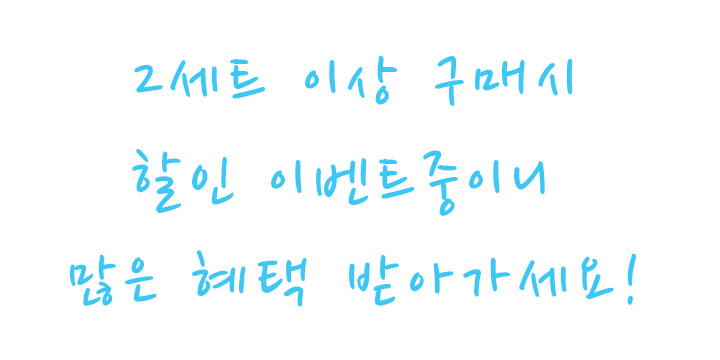 2세트 이상 구매시
할인 이벤트중이니
많은 혜택 받아가세요!